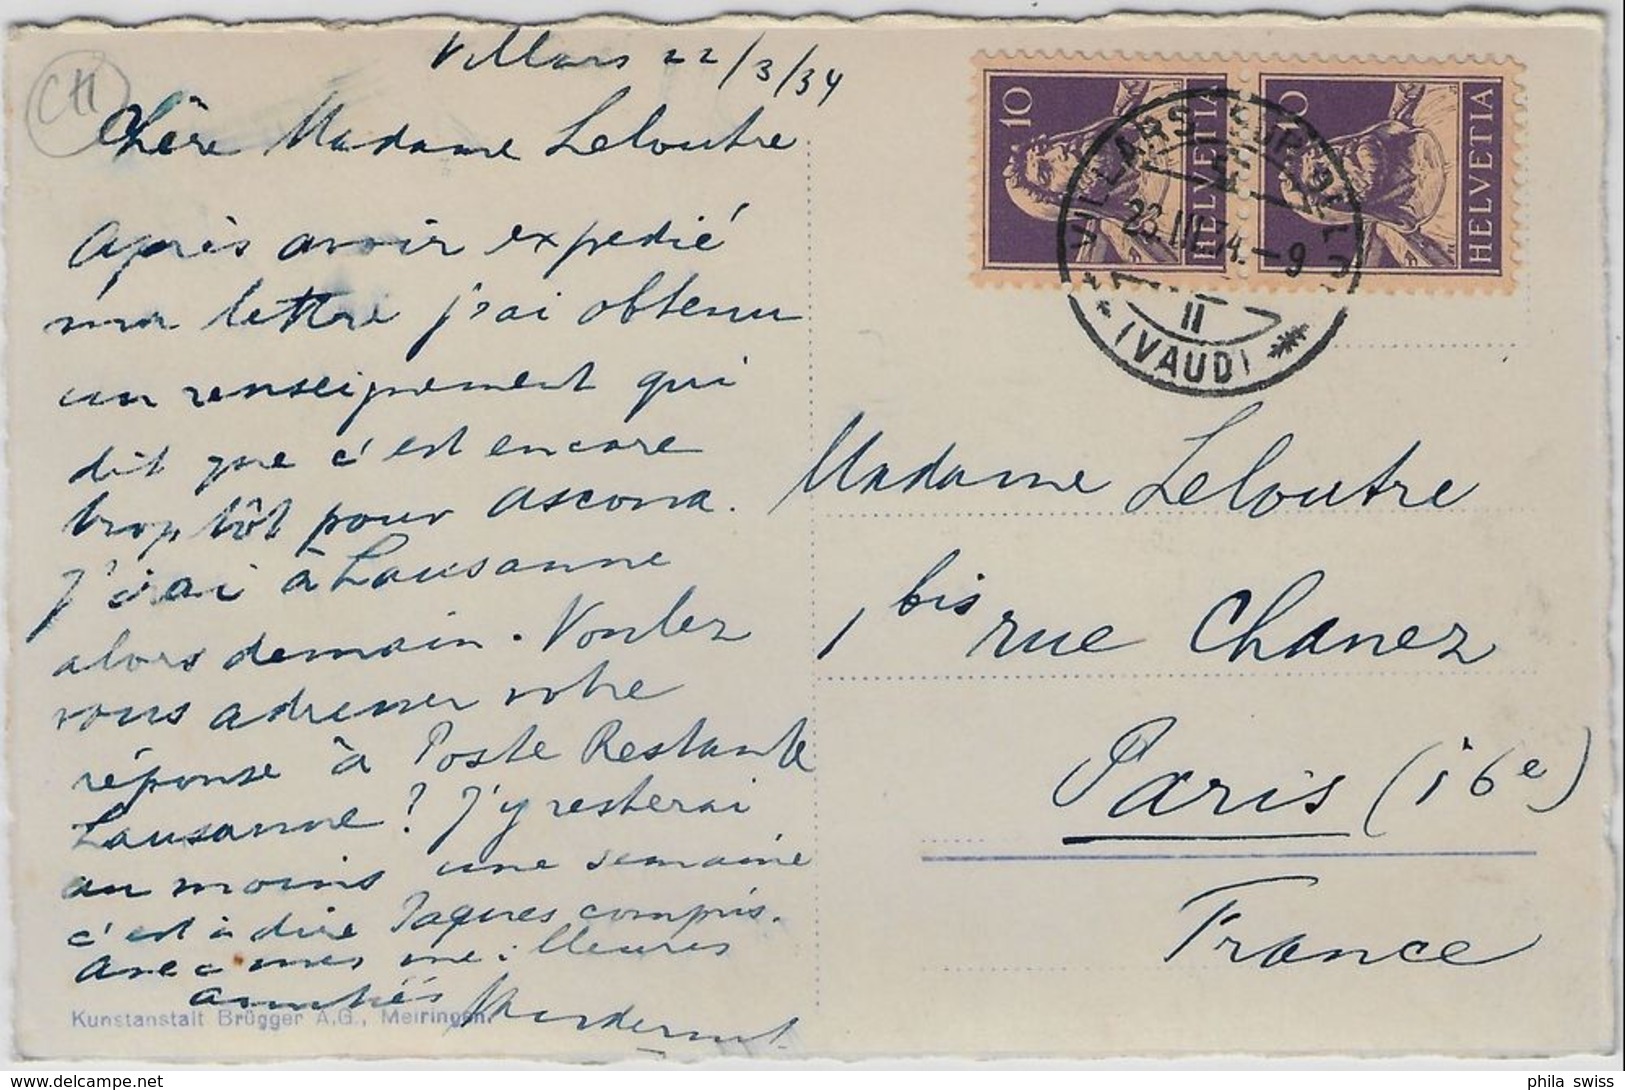 CH
Villars 22/3/34
Chère Madame Leloutre
Après avoir expedié
ma lettre j'ai obtenu
un renseignement qui
dit que c'est encore
trop tôt pour Ascona.
J'irai à Lausanne
alors demain. Voulez
vous adresser votre
réponse à Poste Restante
Lausanne? J'y resterai
au moins une semaine
c'est à dire Paques compris.
Avec mes meilleures
amitiés
Kunstanstalt Brügger A.G., Meiringen.
10
HELVETIA
10
HELVETIA
VILLARS SUR OLLON
23.III.34.-9
II
(VAUD)
Madame Leloutre
1 bis rue Chanez
Paris (16e)
France
phila swiss